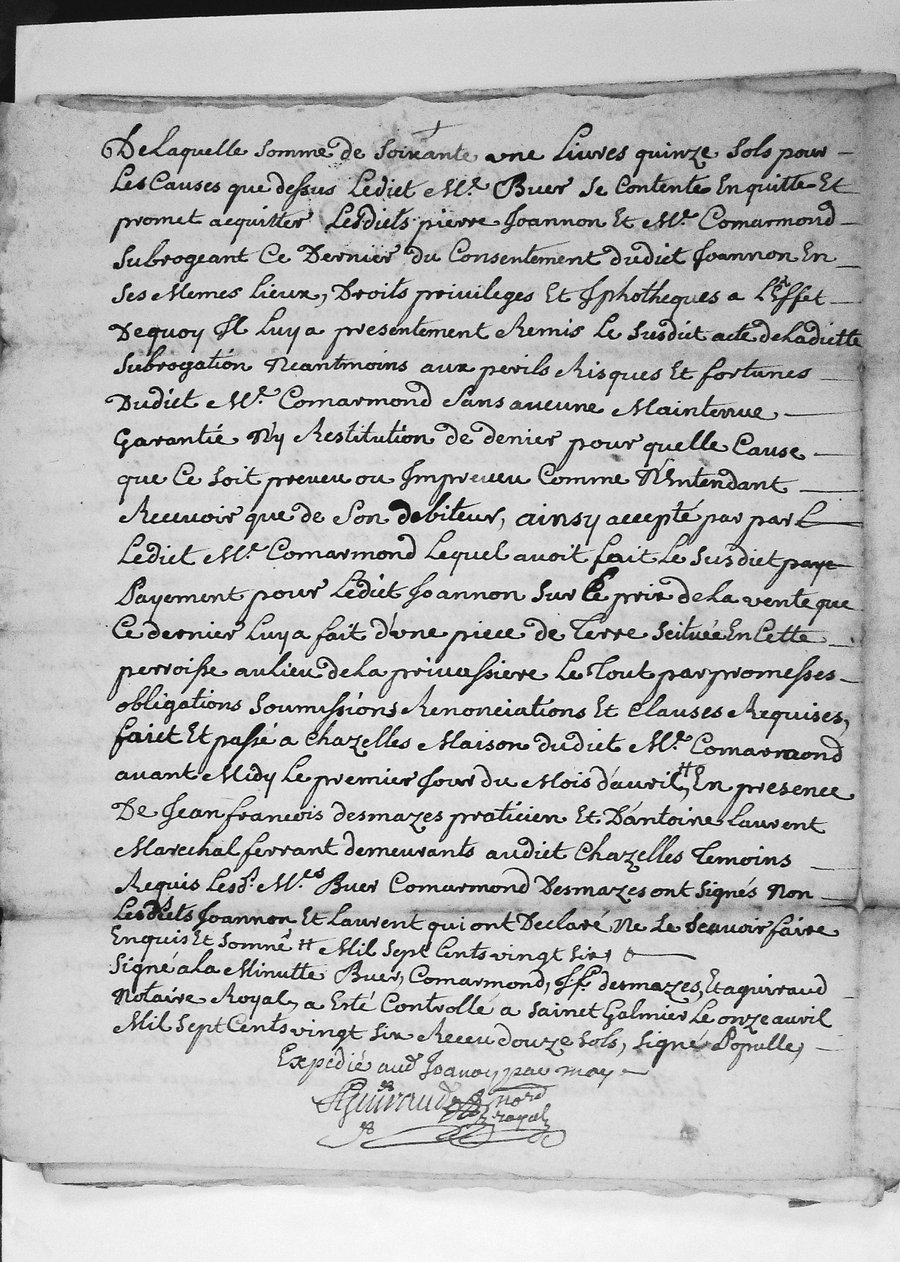 De Laquelle Somme de Soixante une Livres quinze Sols pour
Les Causes que dessus Ledict Mr. Buer Se Contente En quitte Et
promet acquitter Lesdicts pierre Joannon Et Mr. Comarmond
Subrogeant Ce Dernier du Consentement dudict Joannon En
Ses Memes Lieux, Droits privileges Et Iphotheques a L'Effet
Dequoy Il Luy a presentement Remis Le Susdict acte de Ladicte
Subrogation Neantmoins aux perils Risques Et fortunes
Dudict Mr. Comarmond Sans aucune Maintenue
Garantie Ny Restitution de denier pour quelle Cause
que Ce Soit preveu ou Impreveu Comme N'Entendant
Recevoir que de Son debiteur, ainsy accepté par par
Ledict Mr. Comarmond Lequel avoit fait Le Susdict paye
Payement pour Ledict Joannon Sur Le prix de La vente que
Ce dernier Luy a fait d'une piece de Terre Scituée En Cette
perroisse au lieu de La princessiere Le Tout par promesses
obligations Soumissions Renonciations Et Clauses Requises,
faict Et passé a Chazelles Maison dudict Mr. Comarmond
avant Midy Le premier Jour du Mois d'avril, # En presence
De Jean francois desmazes praticien Et D'antoine Laurent
Marechal ferrant demeurants audict Chazelles Temoins
Requis Lesd. Mrs Buer Comarmond Desmazes ont Signés Non
Lesdicts Joannon Et Laurent qui ont Declaré Ne Le Scavoir faire
Enquis Et Sommé # Mil Sept Cents vingt Six,
Signé a La Minutte Buer, Comarmond, Jf. desmazes, Et aguirraud
Notaire Royal, a Esté Controllé a Sainct Galmier Le onze avril
Mil Sept Cents vingt Six Receu douze Sols, Signé Populle,
Expédié aud Joanon par moy
Aguiraud nore
royal